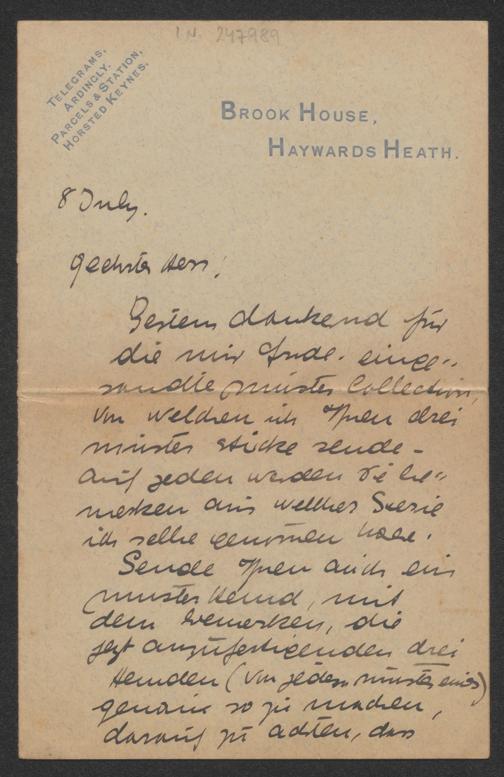 I.N. 247989
TELEGRAMS,
ARDINGLY.
PARCELS & STATION,
HORSTED KEYNES.
BROOK HOUSE,
HAYWARDS HEATH.
8 July.
Geehrter Herr!
Bestens dankend für
die mir einge-
sandte muster Collection,
von welchen ich Ihnen drei
muster stücke sende -
auf jeden werden Sie be-
merken aus welcher Serie
ich selbe genommen habe.
Sende Ihnen auch ein
muster Hemd, mit
dem bemerken, die
jezt anzufertigenden drei
Hemden (von jeden muster eines)
genaus so zu machen,
darauf zu achten, dass